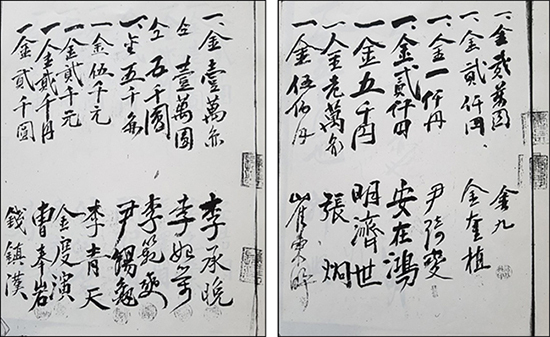 一、金貳萬圓 金九
一、金貳仟円、 金奎植
一、金一仟円 尹琦燮
一、金貳仟円 安在鴻
一金五千円 明濟世
一金 萬 張炯
一金伍仟円 崔東旿
一、金壹萬 李承晩
仝 壹萬圓 李始榮
仝 五千圓 李範奭
一、金五千 尹錫龜
一金伍千元 李青天
一金貳千元 金度演
一金貳千円 曺奉岩
一金貳千圓 錢鎮漢